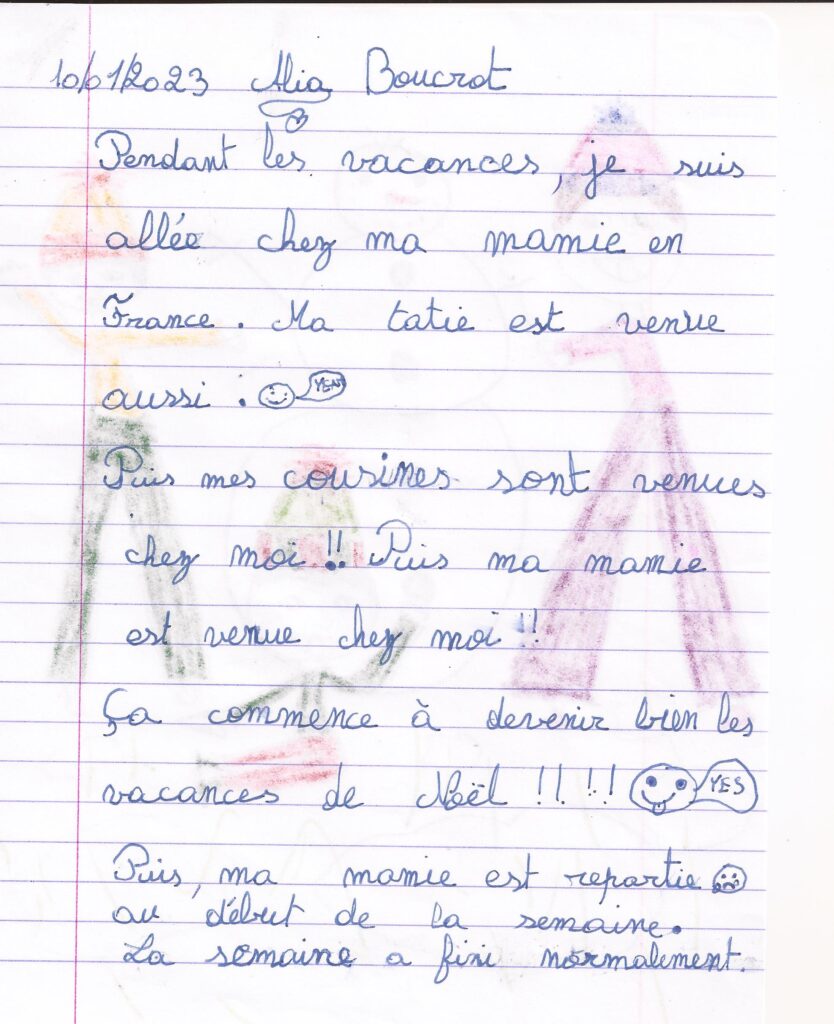 10/01/2023 Alia Boucrot
Pendant les vacances, je suis
allée chez ma mamie en
France. Ma tatie est venue
aussi. YES
Puis mes cousines sont venues
chez moi !! Puis ma mamie
est venue chez moi !!
Ça commence à devenir bien les
vacances de Noël !!!! YES
Puis, ma mamie est repartie
au début de la semaine.
La semaine a fini normalement.